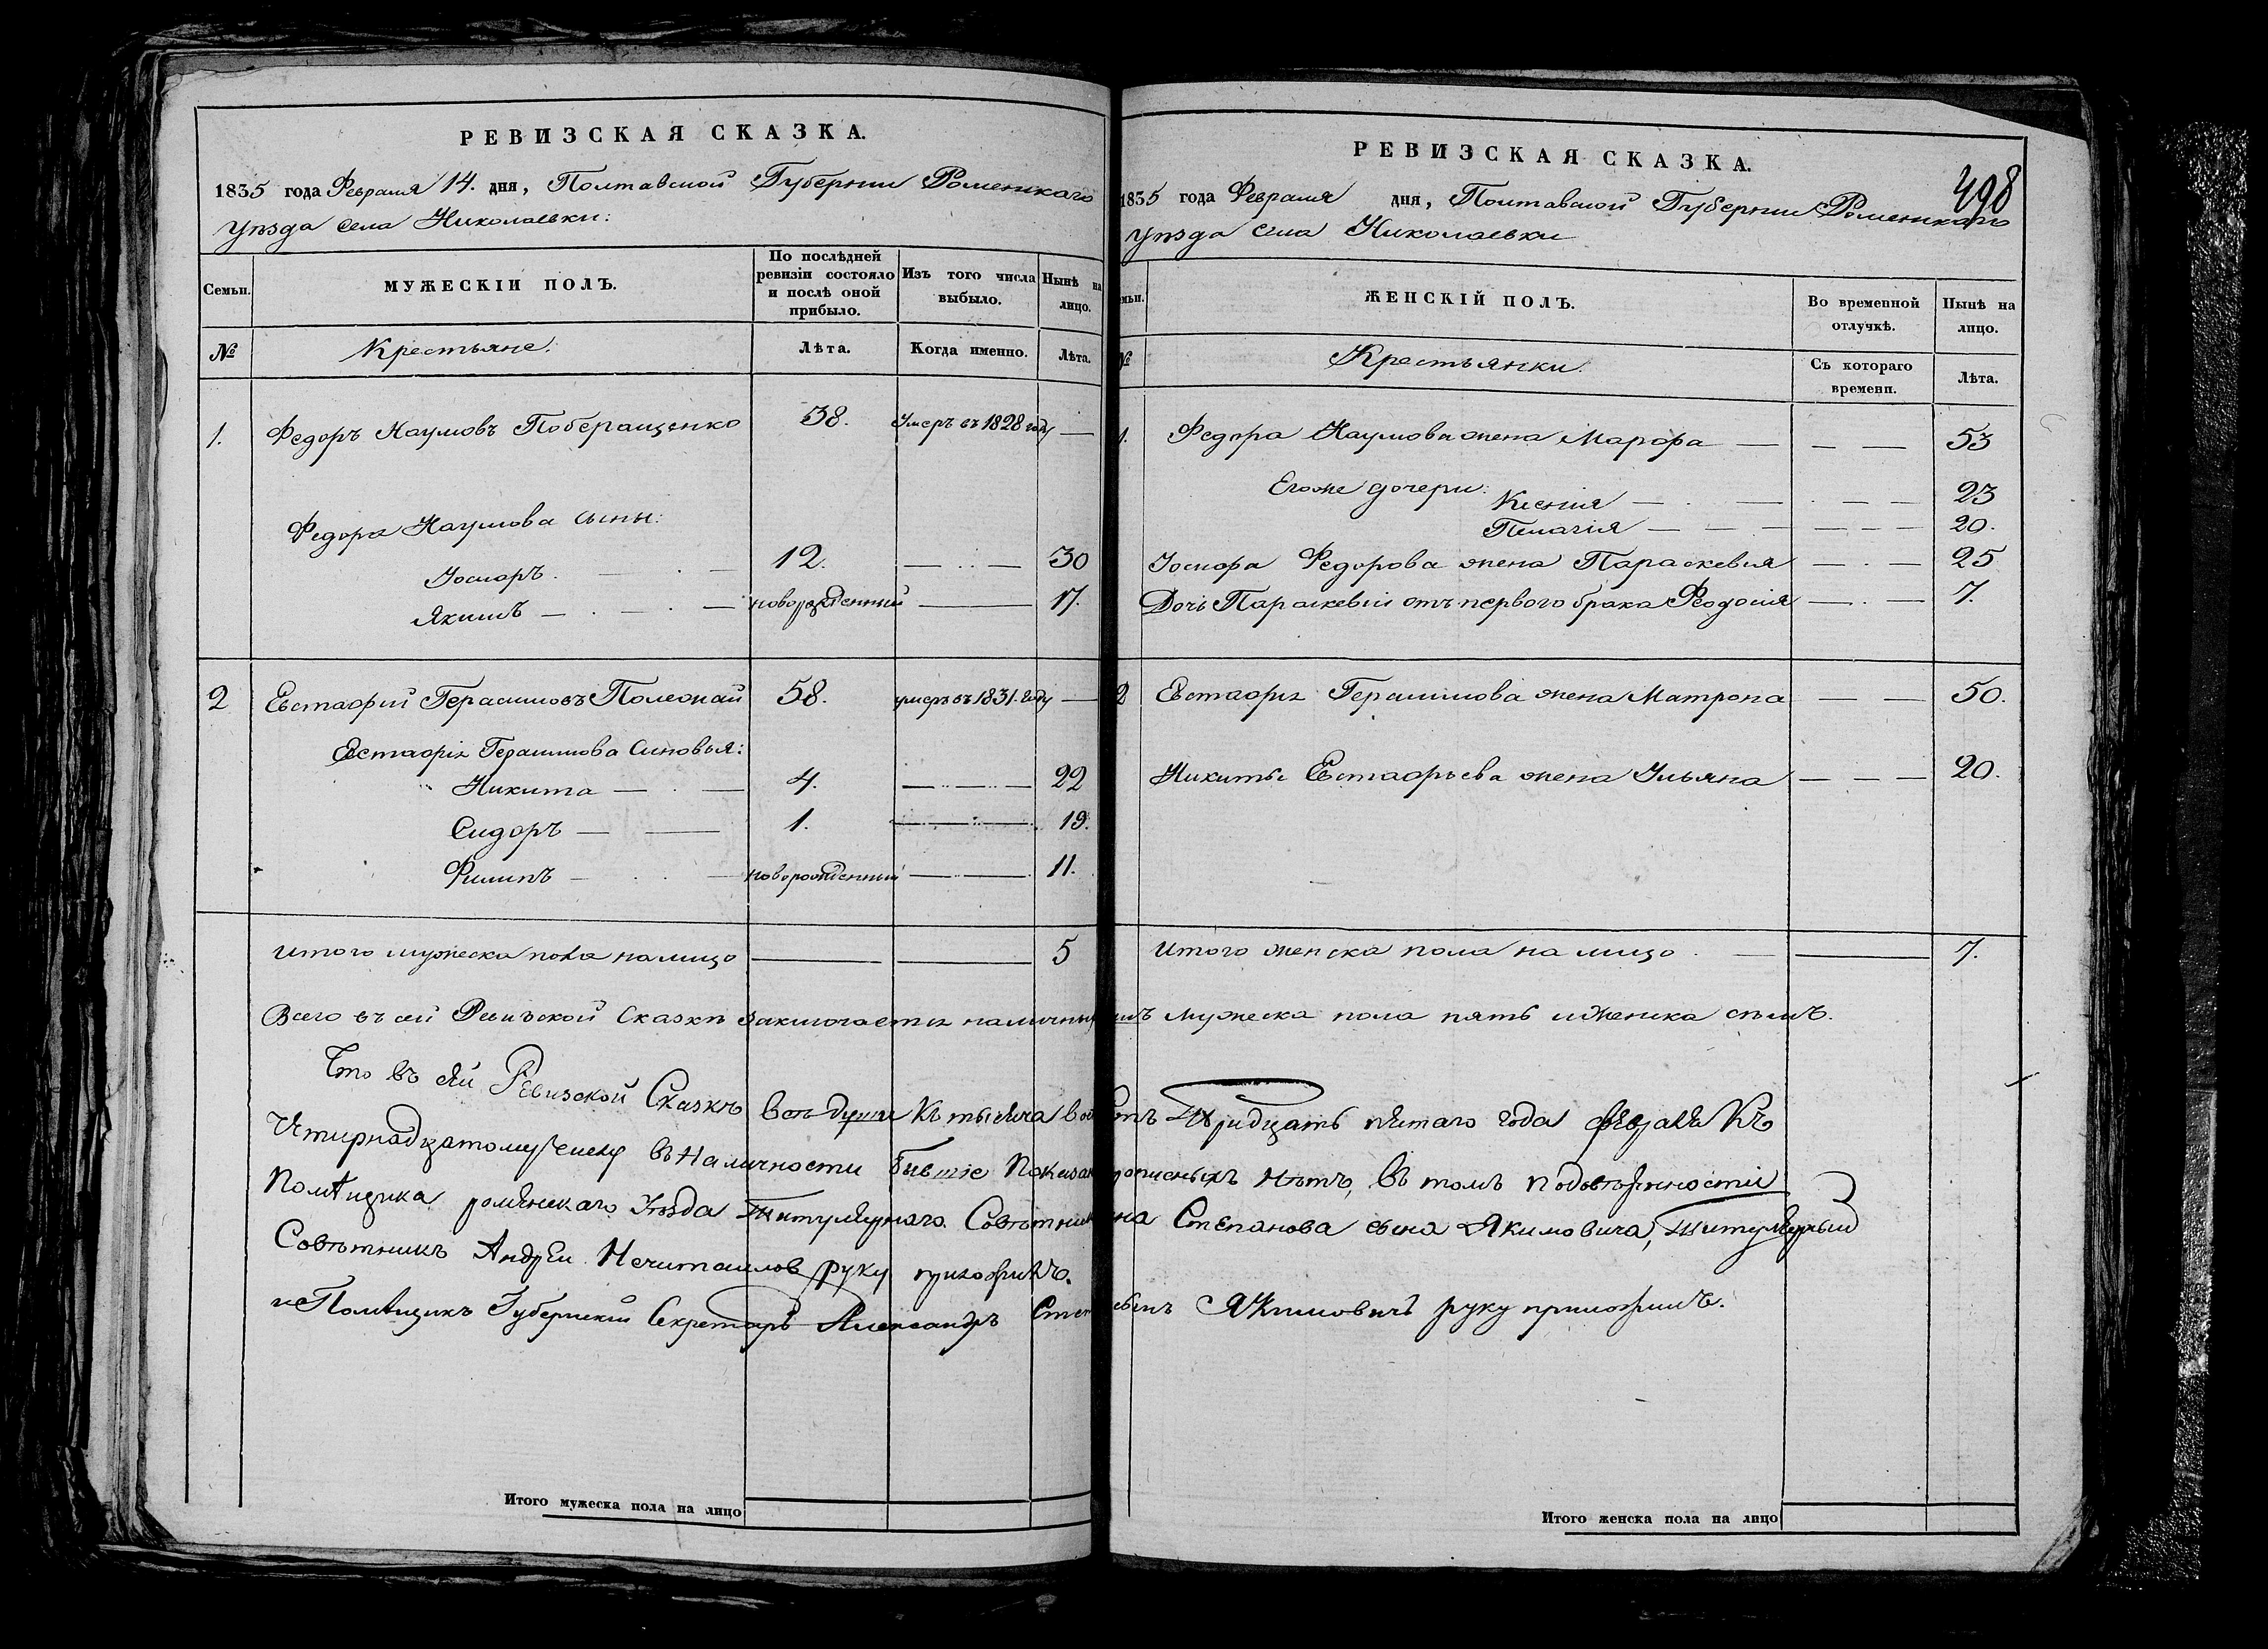 РЕВИЗСКАЯ СКАЗКА.
1835 года Февраля 14. дня, Полтавской Губернии Роменскаго
Уѣзда села Николаевки:
Семьи.
МУЖЕСКІЙ ПОЛЪ.
По послѣдней ревизіи состояло и послѣ оной прибыло.
Изъ того числа выбыло.
Нынѣ на лицо.
№
Крестьяне:
Лѣта.
Когда именно.
Лѣта.
1. Федоръ Наумовъ Поберащенко 38. Умеръ въ 1828 году —
Федора Наумова сыны:
Іосифъ. 12. — 30
Якимъ — новорожденный — 17.
2 Евстафий Герасимовъ 58. умеръ въ 1831. году —
Евстафія Герасимова сыновья:
Никита — 4. — 22
Сидоръ — 1. — 19.
Филипъ — новорожденный — 11.
Итого мужеска пола налицо — — 5
РЕВИЗСКАЯ СКАЗКА.
498
1835 года Февраля дня, Полтавской Губернии Роменскаго
Уѣзда села Николаевки
ЖЕНСКІЙ ПОЛЪ.
Во временной отлучкѣ.
Нынѣ на лицо.
№
Крестьянки:
Съ котораго времени.
Лѣта.
1. Федора Наумова жена Марфа — — — 53
Егоже дочери:
Ксенія — — — 23
Пелагія — — — 20.
Іосифа Федорова жена Параскевия — — 25
Дочь Параскевіи отъ перваго брака Феодосія — — 7.
2 Евстафія Герасимова жена Матрона — — 50.
Никиты Евстафьева жена Ульяна — — — 20.
Итого женска пола на лицо. — — 7.
Всего въ сей Ревизской Сказкѣ заключается наличныхъ мужеска пола пять и женска семь.
Что въ сей Ревизской Сказкѣ всѣ души къ тысяча тридцать пятаго года февраля Къ
Четырнадцатому числу въ наличности бывшіе нѣтъ, въ томъ
Помѣщика роменскаго Уѣзда Титулярнаго Степанова сына Якимовича, титулярный
Совѣтникъ Андрей Нечитайлов руку приложилъ.
и Помѣщикъ Губернский Секретарь Александръ Якимовичъ руку приложилъ.
Итого мужеска пола на лицо
Итого женска пола на лицо